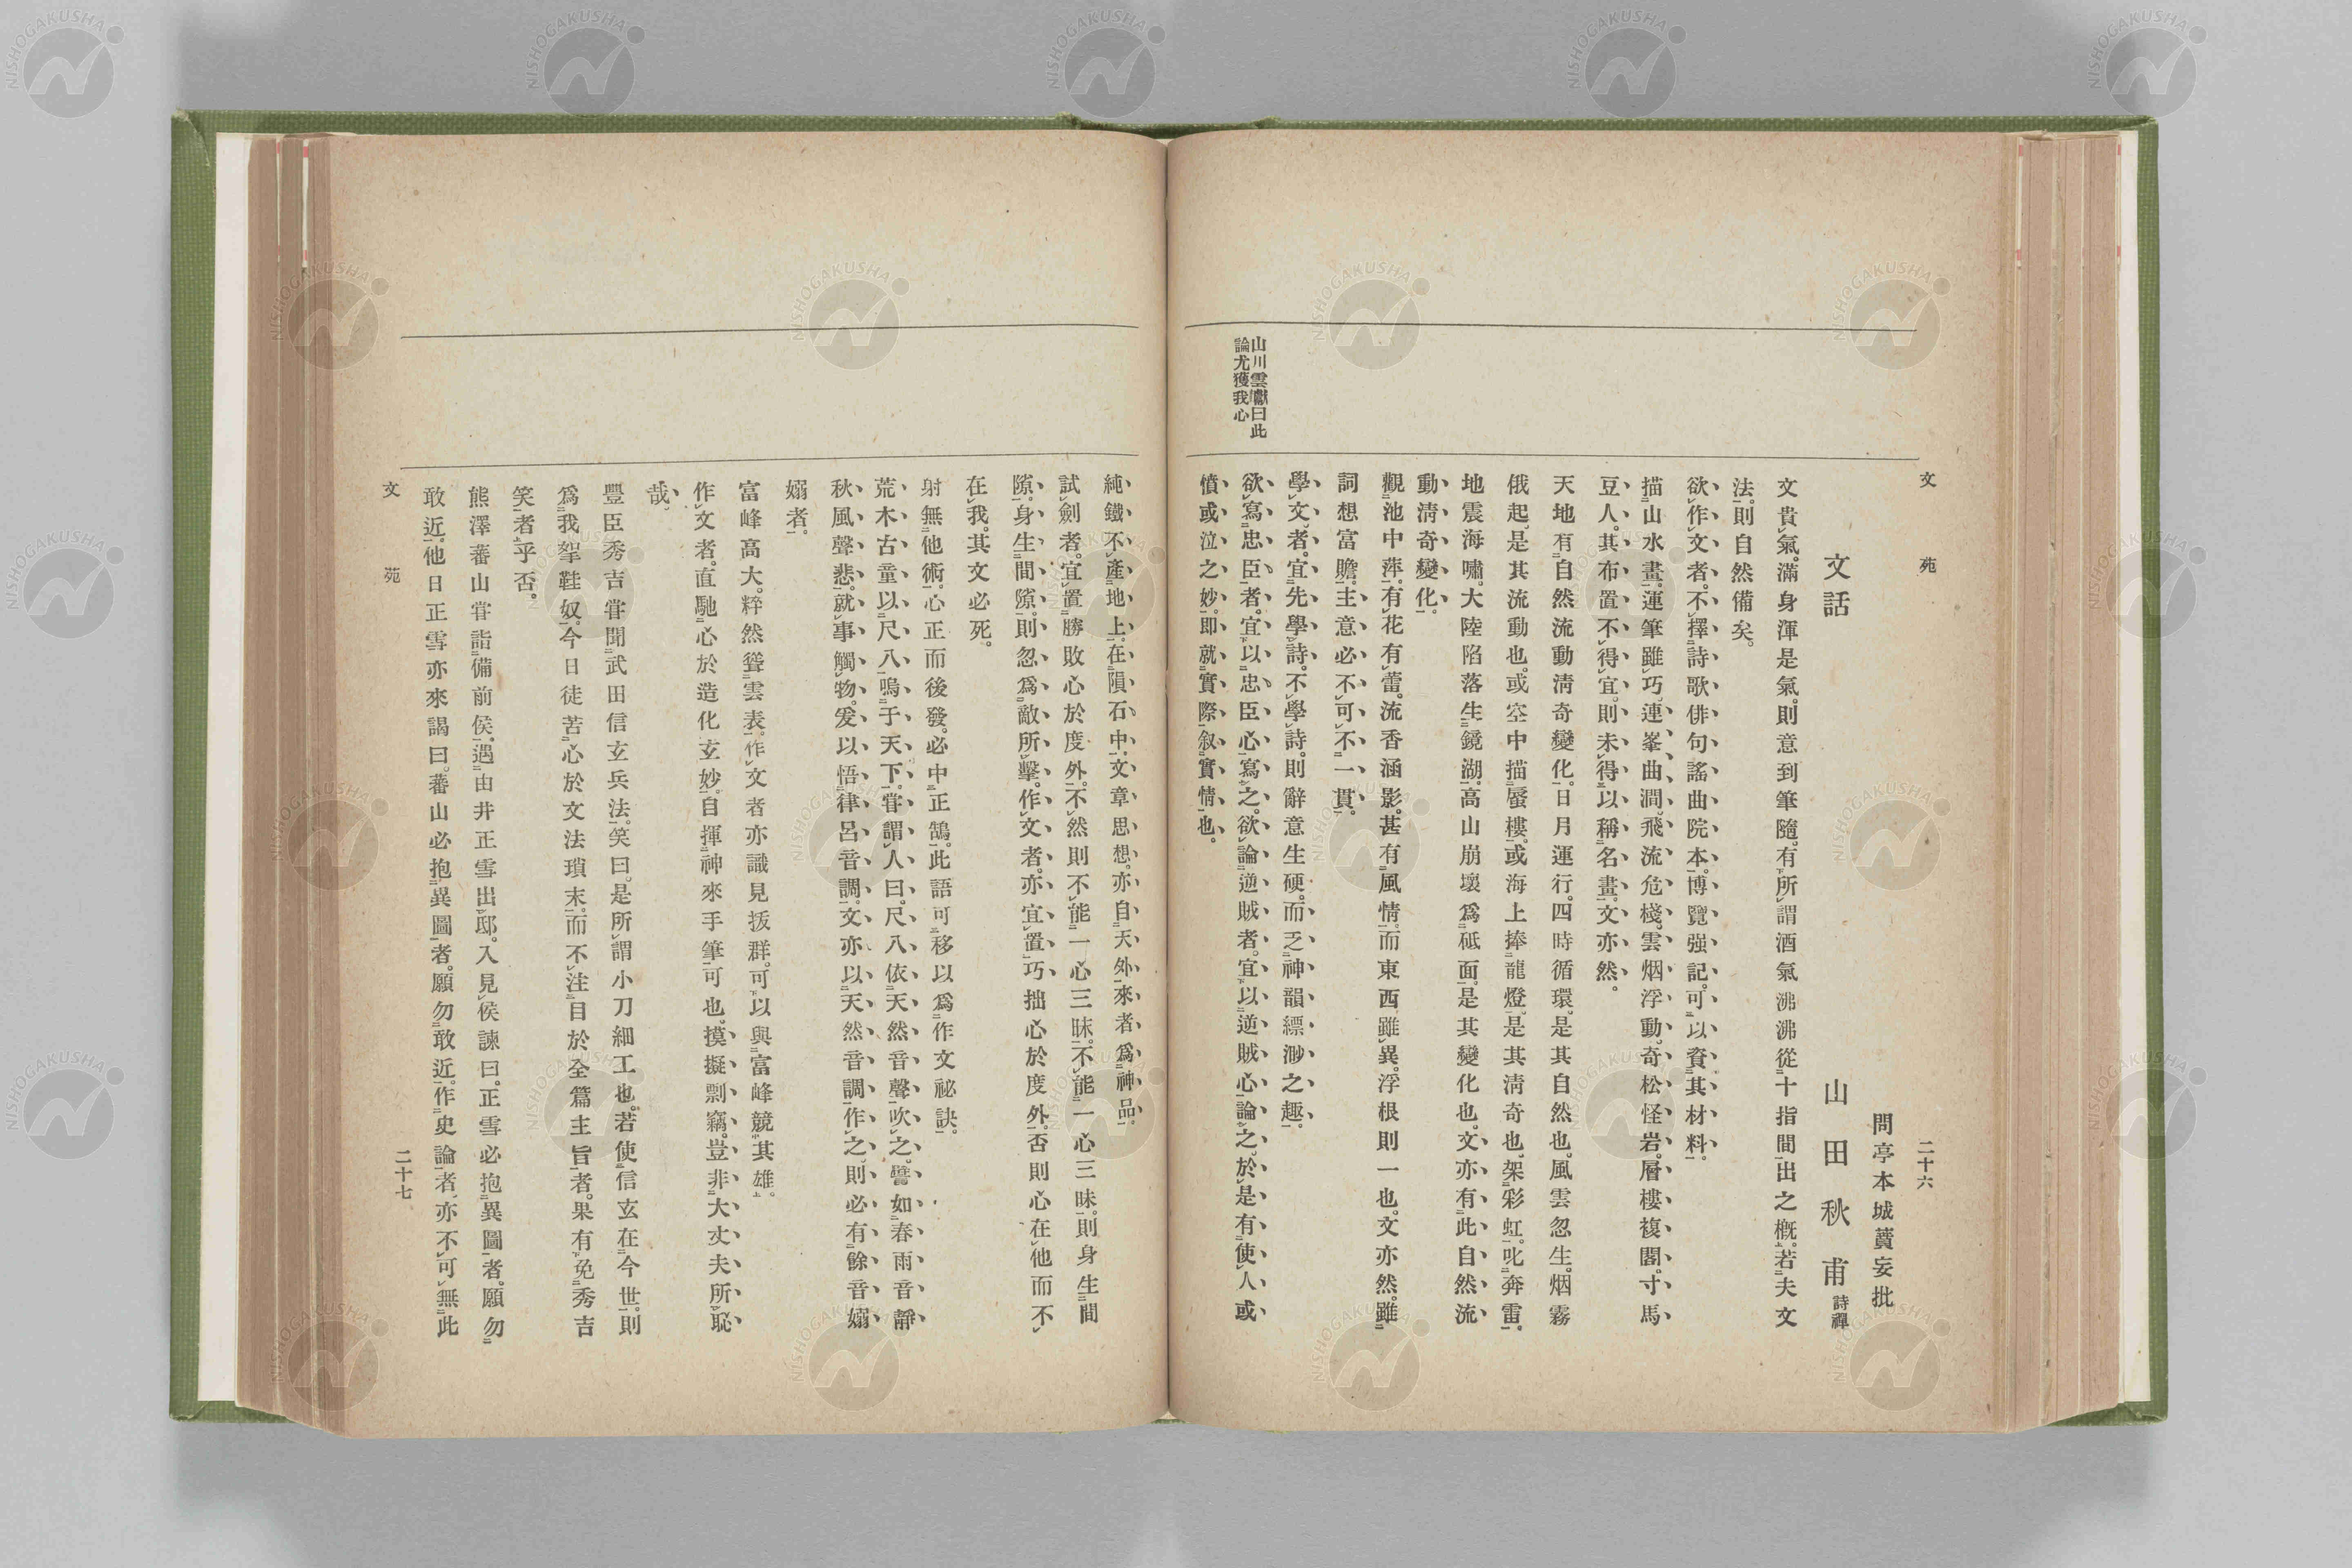 文苑
二十六
問亭本城蕡妄批
文話
山田秋甫詩禪
文貴氣。滿身渾是氣。則意到筆隨。有所謂酒氣沸沸從十指間出之槪。若夫文
法。則自然備矣。
欲作文者。不擇詩歌俳句謠曲院本。博覽强記。可以資其材料。
描山水畫。運筆雖巧。連峯曲澗。飛流危棧。雲烟浮動。奇松怪岩。層樓複閣。寸馬
豆人。其布置不得宜。則未得以稱名畫。文亦然。
天地有自然流動淸奇變化。日月運行。四時循環。是其自然也。風雲忽生。烟霧
俄起。是其流動也。或空中描蜃樓。或海上捧龍燈。是其淸奇也。架彩虹。叱奔雷。
地震海嘯。大陸陷落生鏡湖。高山崩壞爲砥面。是其變化也。文亦有此自然流
動淸奇變化。
觀池中萍。有花有蕾。流香涵影。甚有風情。而東西雖異。浮根則一也。文亦然。雖
詞想富贍。主意必不可不一貫。
學文者。宜先學詩。不學詩。則辭意生硬。而乏神韻縹渺之趣。
山川雲巘曰此
論尤獲我心
欲寫忠臣者。宜以忠臣心寫之。欲論逆賊者。宜以逆賊心論之。於是有使人或
憤或泣之妙。卽就實際叙實情也。
純鐵不產地上。在隕石中。文章思想。亦自天外來者爲神品。
試劍者。宜置勝敗心於度外。不然則不能一心三昧。不能一心三昧。則身生間
隙。身生間隙。則忽爲敵所擊。作文者。亦宜置巧拙心於度外。否則心在他而不
在我。其文必死。
射無他術。心正而後發。必中正鵠。此語可移以爲作文祕訣。
荒木古童以尺八鳴于天下。甞謂人曰。尺八依天然音聲吹之。譬如春雨音靜
秋風聲悲。就事觸物。爰以悟律呂音調。文亦以天然音調作之。則必有餘音嫋
嫋者。
富峰高大。粹然聳雲表。作文者亦識見拔群。可以與富峰競其雄。
作文者。直馳心於造化玄妙。自揮神來手筆可也。摸擬剽竊。豈非大丈夫所恥
哉。
豐臣秀吉甞聞武田信玄兵法。笑曰。是所謂小刀細工也。若使信玄在今世。則
爲我挐鞋奴。今日徒苦心於文法瑣末。而不注目於全篇主旨者。果有免秀吉
笑者乎否。
熊澤蕃山甞詣備前侯。遇由井正雪出邸。入見侯諫曰。正雪必抱異圖者。願勿
敢近。他日正雪亦來謁曰。蕃山必抱異圖者。願勿敢近。作史論者。亦不可無此
文苑
二十七
NISHOGAKUSHA